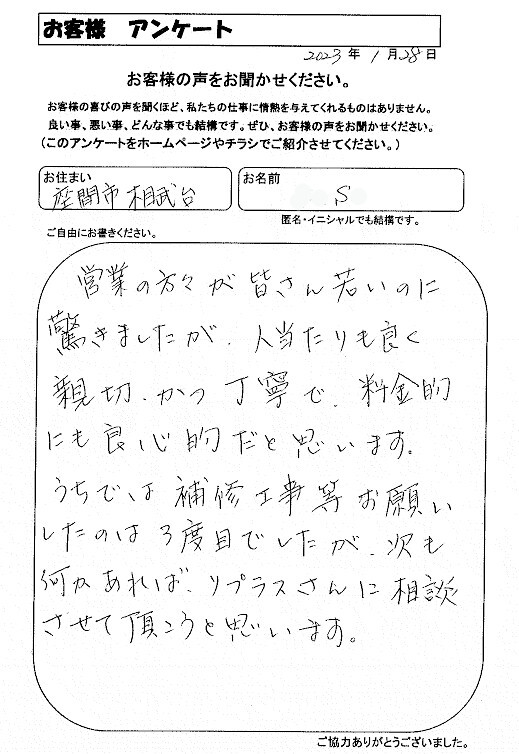 お客様 アンケート
2023年1月28日
お客様の声をお聞かせください。
お客様の喜びの声を聞くほど、私たちの仕事に情熱を与えてくれるものはありません。
良い事、悪い事、どんな事でも結構です。ぜひ、お客様の声をお聞かせください。
(このアンケートをホームページやチラシでご紹介させてください。)
お住まい
座間市相武台
お名前
S
匿名・イニシャルでも結構です。
ご自由にお書きください。
営業の方々が皆さん若いのに
驚きましたが、人当たりも良く
親切、かつ丁寧で、料金的
にも良心的だと思います。
うちでは補修工事等お願い
したのは3度目でしたが、次も
何かあれば、リプラスさんに相談
させて頂こうと思います。
ご協力ありがとうございました。